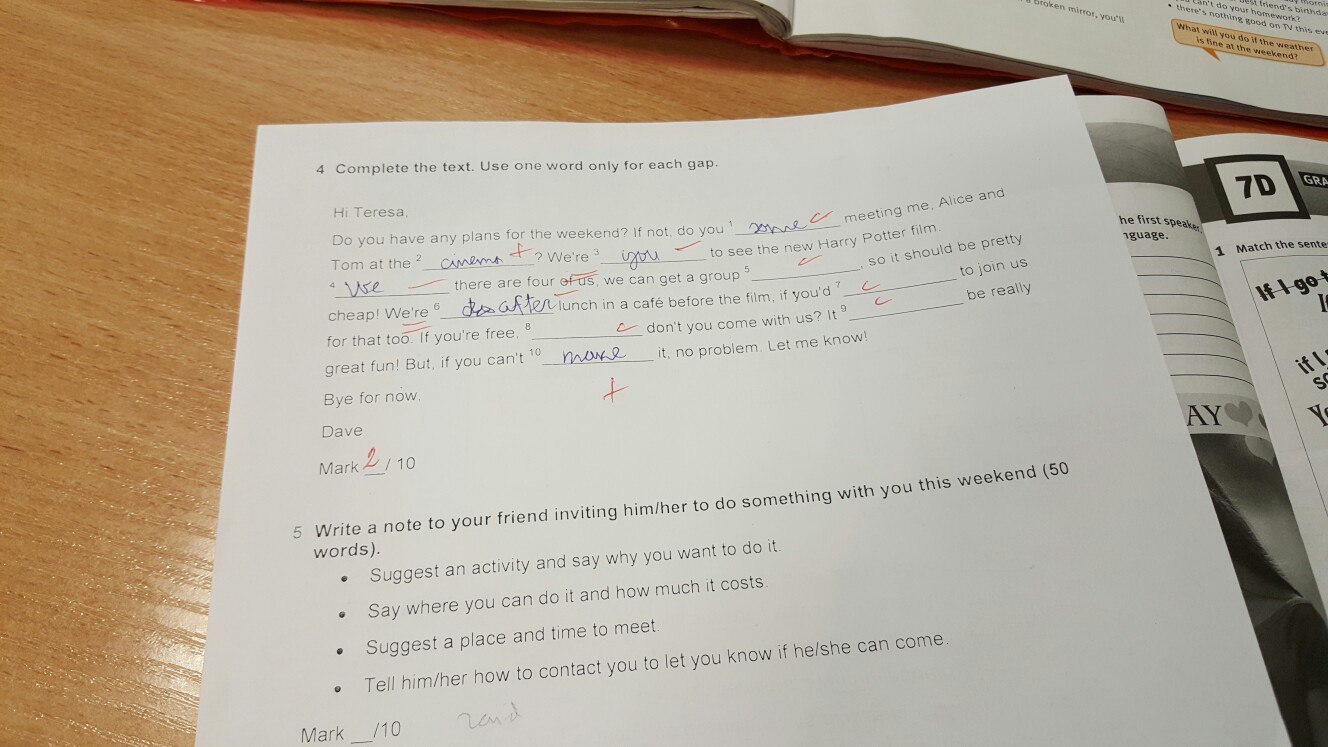 broken mirror, you'll
can't do your homework?
• there's nothing good on TV this eve
What will you do if the weather
is fine at the weekend?
4 Complete the text. Use one word only for each gap.
Hi Teresa,
Do you have any plans for the weekend? If not, do you 1 some meeting me, Alice and
Tom at the 2 cinema ? We're 3 you to see the new Harry Potter film.
4 We there are four of us, we can get a group 5 , so it should be pretty
cheap! We're 6 after lunch in a café before the film, if you'd 7 to join us
for that too. If you're free, 8 don't you come with us? It 9 be really
great fun! But, if you can't 10 make it, no problem. Let me know!
Bye for now,
Dave
Mark 2 / 10
5 Write a note to your friend inviting him/her to do something with you this weekend (50
words).
• Suggest an activity and say why you want to do it.
• Say where you can do it and how much it costs.
• Suggest a place and time to meet.
• Tell him/her how to contact you to let you know if he/she can come.
Mark __/10
he first speaker
nguage.
AY
7D
GRA
1 Match the sente
If I go t
if I